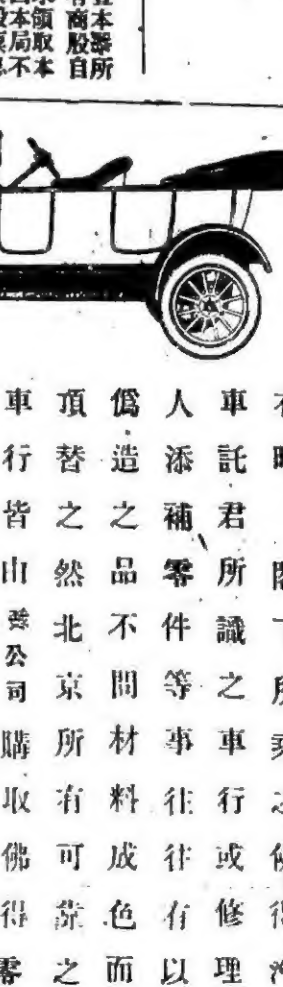 有商股自
領取本
本局不
車託君所識之車行或修理
人添補零件等事往往有以
僞造之品不問材料成色而
頂替之然北京所有可靠之
車行皆由敝公司購取佛得零